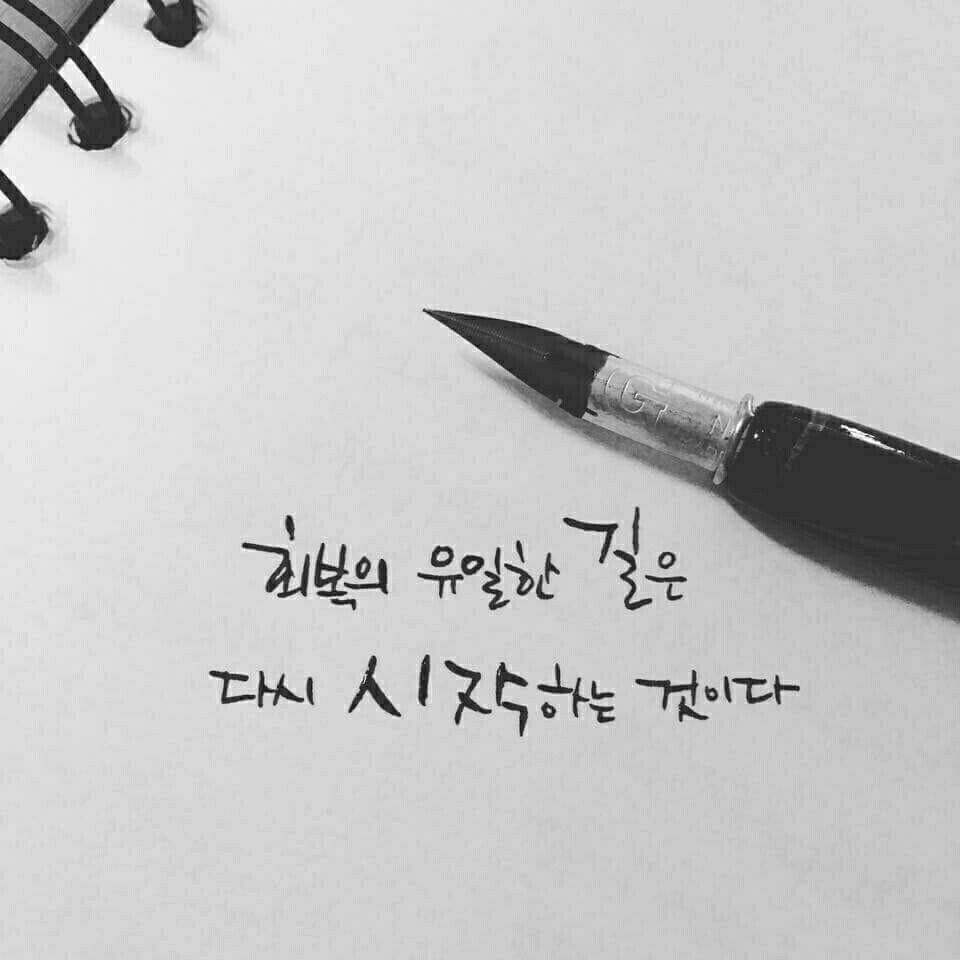 회복의 유일한 길은
다시 시작하는 것이다